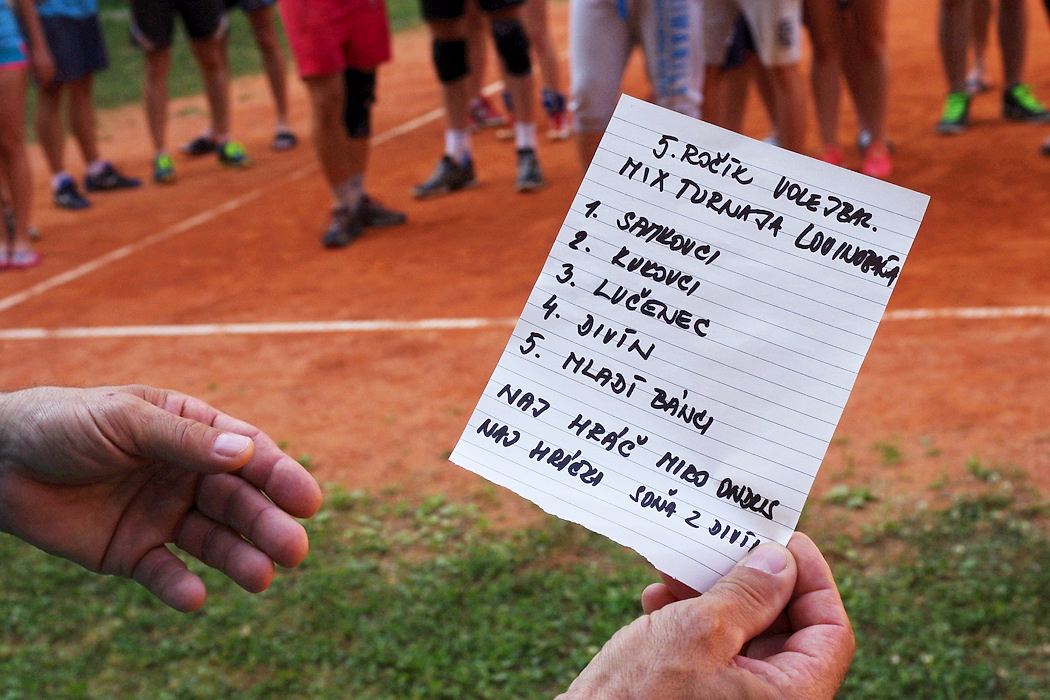 5. ROČÍK VOLEJBAL.
MIX TURNAJA LOVINOBAŇA
1. SAMKOVCI
2. KUKOVCI
3. LUČENEC
4. DIVÍN
5. MLADÍ BÁNCI
NAJ HRÁČ MIRO ONDLIS
NAJ HRÁČKA SOŇA Z DIVÍN